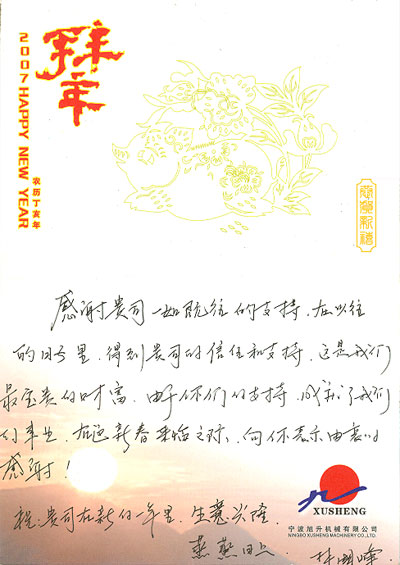 拜年
2007 HAPPY NEW YEAR
农历丁亥年
恭贺新禧
感谢贵司一如既往的支持、在以往
的日子里、得到贵司的信任和支持、这是我们
最宝贵的财富、由于你们的支持、成就了我们
的事业、在迎新春来临之际、向你表示由衷的
感谢！
祝：贵司在新的一年里、生意兴隆、
蒸蒸日上、
XUSHENG
宁波旭升机械有限公司
NINGBO XUSHENG MACHINERY CO.,LTD.